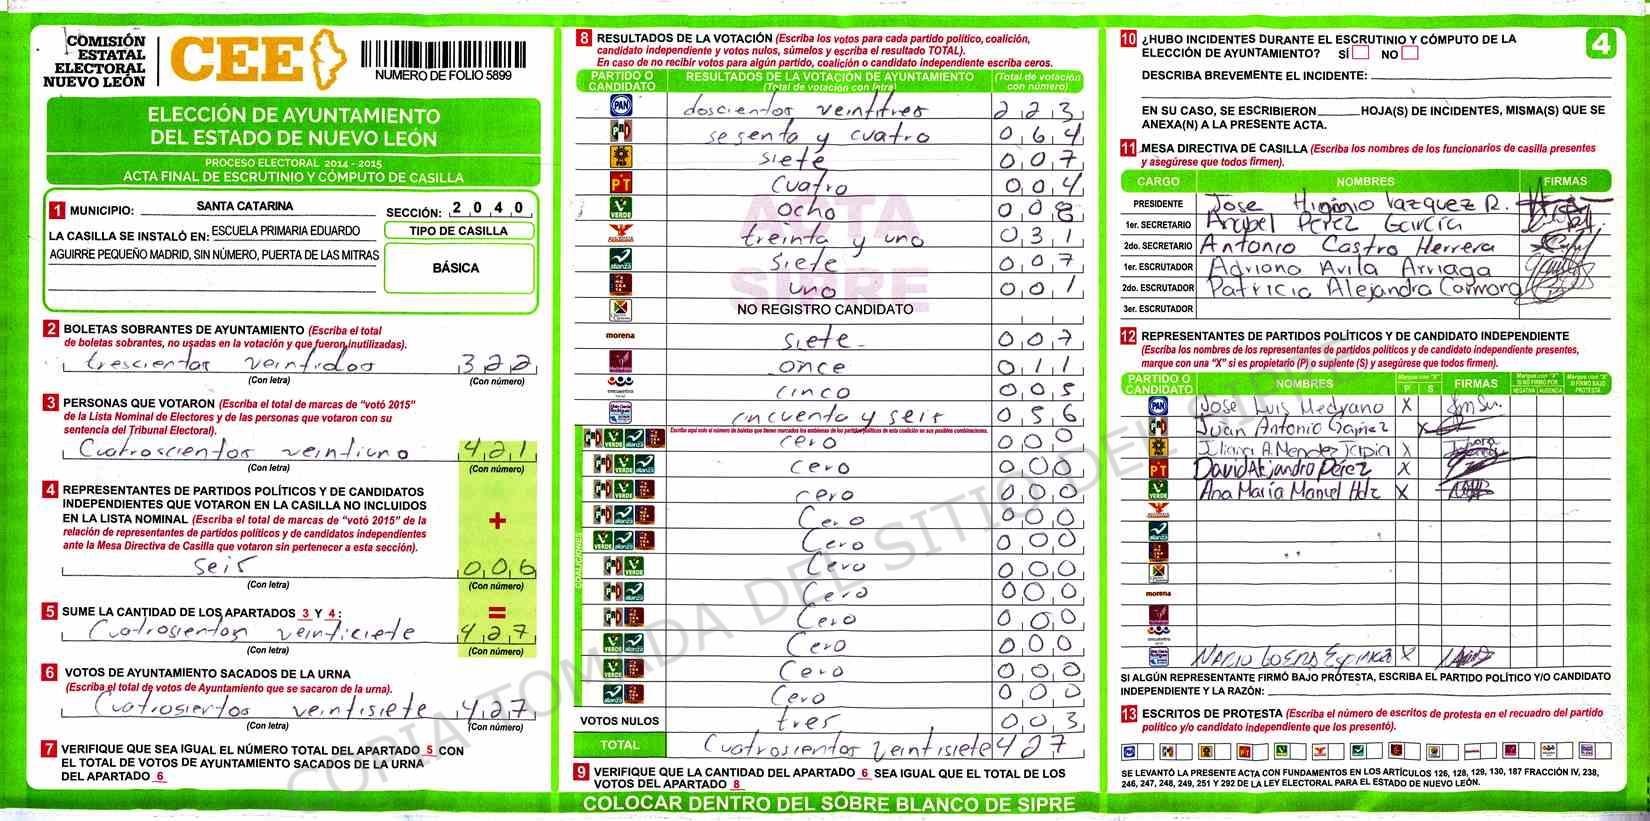 COMISIÓN
ESTATAL
ELECTORAL
NUEVO LEÓN
CEE
NUMERO DE FOLIO 5899
ELECCIÓN DE AYUNTAMIENTO
DEL ESTADO DE NUEVO LEÓN
PROCESO ELECTORAL 2014 - 2015
ACTA FINAL DE ESCRUTINIO Y CÓMPUTO DE CASILLA
1 MUNICIPIO: SANTA CATARINA
SECCIÓN: 2 0 4 0
LA CASILLA SE INSTALÓ EN: ESCUELA PRIMARIA EDUARDO
AGUIRRE PEQUEÑO MADRID, SIN NÚMERO, PUERTA DE LAS MITRAS
TIPO DE CASILLA
BÁSICA
2 BOLETAS SOBRANTES DE AYUNTAMIENTO (Escriba el total
de boletas sobrantes, no usadas en la votación y que fueron inutilizadas).
trescientos veintidos 322
(Con letra) (Con número)
3 PERSONAS QUE VOTARON (Escriba el total de marcas de "votó 2015"
de la Lista Nominal de Electores y de las personas que votaron con su
sentencia del Tribunal Electoral).
Cuatroscientos veintiuno 421
(Con letra) (Con número)
4 REPRESENTANTES DE PARTIDOS POLÍTICOS Y DE CANDIDATOS
INDEPENDIENTES QUE VOTARON EN LA CASILLA NO INCLUIDOS
EN LA LISTA NOMINAL (Escriba el total de marcas de "votó 2015" de la
relación de representantes de partidos políticos y de candidatos independientes
ante la Mesa Directiva de Casilla que votaron sin pertenecer a esta sección).
+
seis 006
(Con letra) (Con número)
5 SUME LA CANTIDAD DE LOS APARTADOS 3 Y 4: =
Cuatrosientos veinticiete 427
(Con letra) (Con número)
6 VOTOS DE AYUNTAMIENTO SACADOS DE LA URNA
(Escriba el total de votos de Ayuntamiento que se sacaron de la urna).
Cuatrosientos veintisiete 427
(Con letra) (Con número)
7 VERIFIQUE QUE SEA IGUAL EL NÚMERO TOTAL DEL APARTADO 5 CON
EL TOTAL DE VOTOS DE AYUNTAMIENTO SACADOS DE LA URNA
DEL APARTADO 6
8 RESULTADOS DE LA VOTACIÓN (Escriba los votos para cada partido político, coalición,
candidato independiente y votos nulos, súmelos y escriba el resultado TOTAL).
En caso de no recibir votos para algún partido, coalición o candidato independiente escriba ceros.
PARTIDO O CANDIDATO
RESULTADOS DE LA VOTACIÓN DE AYUNTAMIENTO
(Total de votación con letra)
(Total de votación con número)
PAN doscientos veintitres 223
PRD sesenta y cuatro 064
PRD siete 007
PT cuatro 004
VERDE ocho 008
treinta y uno 031
alianza siete 007
uno 001
NO REGISTRO CANDIDATO
morena siete 007
once 011
cinco 005
cincuenta y seis 056
Escriba aquí solo el número de boletas que tienen marcados los emblemas de los partidos políticos de esta coalición en sus posibles combinaciones.
COALICIONES
cero 000
cero 000
cero 000
Cero 000
Cero 000
Cero 000
Cero 000
Cero 000
Cero 000
Cero 000
Cero 000
VOTOS NULOS tres 003
TOTAL Cuatrosientos veintisiete 427
9 VERIFIQUE QUE LA CANTIDAD DEL APARTADO 6 SEA IGUAL QUE EL TOTAL DE LOS
VOTOS DEL APARTADO 8
COLOCAR DENTRO DEL SOBRE BLANCO DE SIPRE
ACTA
SIPRE
COPIA TOMADA DEL SITIO DEL SIPRE
10 ¿HUBO INCIDENTES DURANTE EL ESCRUTINIO Y CÓMPUTO DE LA
ELECCIÓN DE AYUNTAMIENTO? SÍ NO
4
DESCRIBA BREVEMENTE EL INCIDENTE:
EN SU CASO, SE ESCRIBIERON HOJA(S) DE INCIDENTES, MISMA(S) QUE SE
ANEXA(N) A LA PRESENTE ACTA.
11 MESA DIRECTIVA DE CASILLA (Escriba los nombres de los funcionarios de casilla presentes
y asegúrese que todos firmen).
CARGO NOMBRES FIRMAS
PRESIDENTE Jose Higinio Vazquez R.
1er. SECRETARIO Anabel Perez Garcia
2do. SECRETARIO Antonio Castro Herrera
1er. ESCRUTADOR Adriana Avila Arriaga
2do. ESCRUTADOR Patricia Alejandra Carmona
3er. ESCRUTADOR
12 REPRESENTANTES DE PARTIDOS POLÍTICOS Y DE CANDIDATO INDEPENDIENTE
(Escriba los nombres de los representantes de partidos políticos y de candidato independiente presentes,
marque con una "X" si es propietario (P) o suplente (S) y asegúrese que todos firmen).
PARTIDO O CANDIDATO NOMBRES Marque con "X" P S FIRMAS Marque con "X" SI NO FIRMÓ POR NEGATIVA AUSENCIA Marque con "X" SI FIRMÓ BAJO PROTESTA
PAN Jose Luis Medrano X
Juan Antonio Gamez X
PRD Juliana A. Mendez Tapia X
PT David Alejandro Perez X
VERDE Ana María Manuel Hdz X
morena
Espinoza X
SI ALGÚN REPRESENTANTE FIRMÓ BAJO PROTESTA, ESCRIBA EL PARTIDO POLÍTICO Y/O CANDIDATO
INDEPENDIENTE Y LA RAZÓN:
13 ESCRITOS DE PROTESTA (Escriba el número de escritos de protesta en el recuadro del partido
político y/o candidato independiente que los presentó).
SE LEVANTÓ LA PRESENTE ACTA CON FUNDAMENTOS EN LOS ARTÍCULOS 126, 128, 129, 130, 187 FRACCIÓN IV, 238,
246, 247, 248, 249, 251 Y 292 DE LA LEY ELECTORAL PARA EL ESTADO DE NUEVO LEÓN.